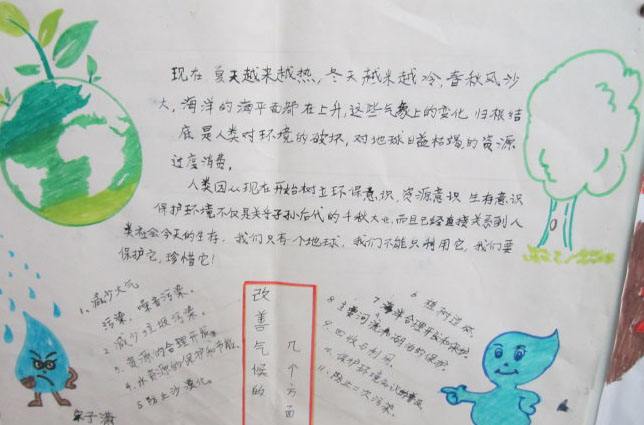 现在夏天越来越热，冬天越来越冷，春秋风沙
大，海洋的海平面都在上升，这些气象上的变化归根结
底是人类对环境的破坏，对地球日益枯竭的资源
过度消费。
人类因从现在开始树立环保意识，资源意识生存意识
保护环境不仅是关乎子孙后代的千秋大业，而且已经直接关系到人
类社会今天的生存，我们只有一个地球，我们不能只利用它，我们要
保护它，珍惜它！
1、减少大气
污染，噪音污染。
2、减少垃圾污染。
3、资源的合理开发。
4、水资源的保护和节能。
5、防止沙漠化。
改善气候的
几个方面
6、
7、海洋合理开发和保护。
8、主要河流和湖泊的保护。
9、回收与利用。
10、保护环境
11、防止二次污染。
子潇